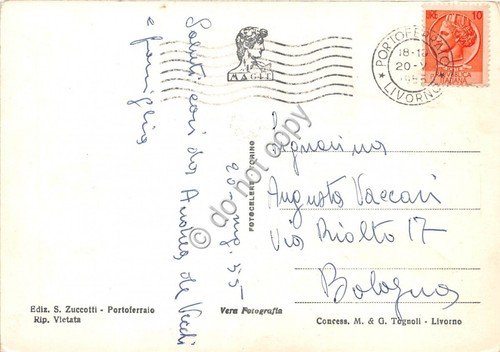 Saluti cari da Andrea de Vecchi
e famiglia
20-mag. 55
MAGGI
PORTOFERRAIO
18-19
20-V
1955
LIVORNO
LIRE 10
REPUBBLICA ITALIANA
Signorina
Augusta Vaccari
Via Rialto 17
Bologna
FOTOCELERE TORINO
© do not copy
Ediz. S. Zuccotti - Portoferraio
Rip. Vietata
Vera Fotografia
Concess. M. & G. Tognoli - Livorno